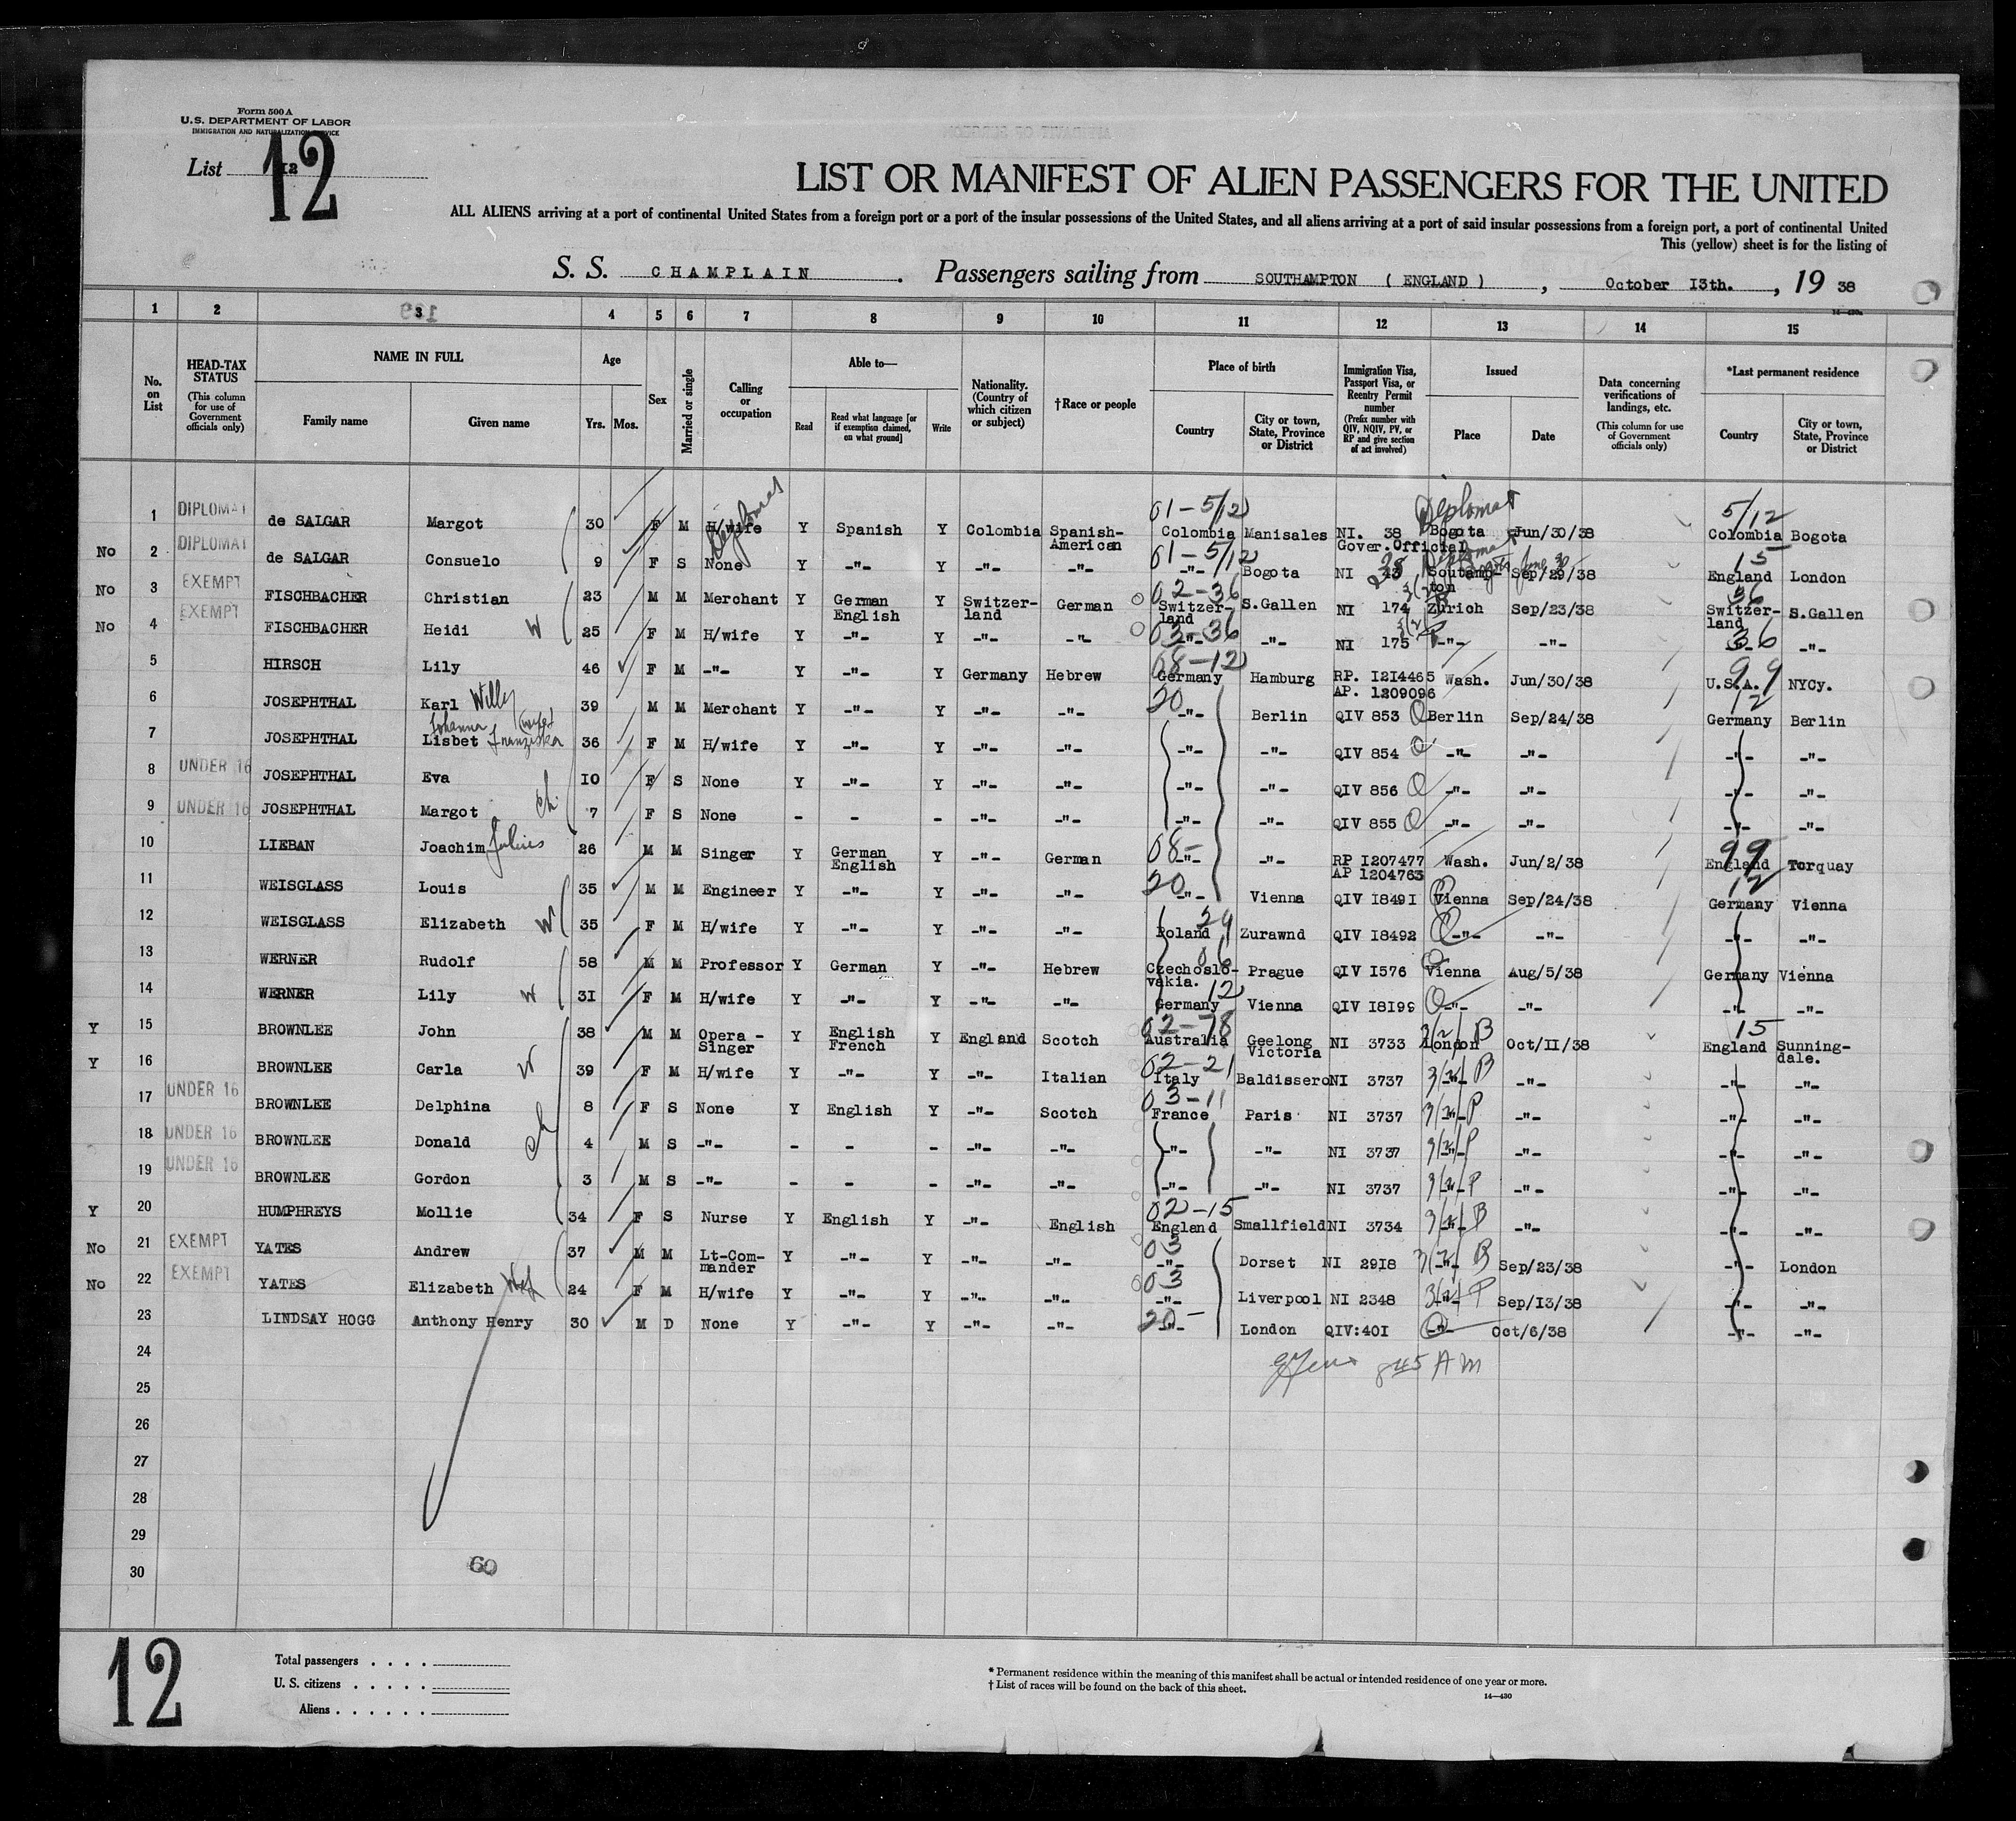 Form 500 A
U.S. DEPARTMENT OF LABOR
IMMIGRATION AND NATURALIZATION SERVICE
List 12
12
LIST OR MANIFEST OF ALIEN PASSENGERS FOR THE UNITED
ALL ALIENS arriving at a port of continental United States from a foreign port or a port of the insular possessions of the United States, and all aliens arriving at a port of said insular possessions from a foreign port, a port of continental United
This (yellow) sheet is for the listing of
S. S. CHAMPLAIN . Passengers sailing from SOUTHAMPTON ( ENGLAND ) , October 13th. , 19 38
1 2 3 4 5 6 7 8 9 10 11 12 13 14 15
No. on List
HEAD-TAX STATUS (This column for use of Government officials only)
NAME IN FULL
Family name Given name
Age
Yrs. Mos.
Sex
Married or single
Calling or occupation
Able to—
Read Read what language [or if exemption claimed, on what ground] Write
Nationality. (Country of which citizen or subject)
†Race or people
Place of birth
Country City or town, State, Province or District
Immigration Visa, Passport Visa, or Reentry Permit number (Prefix number with QIV, NQIV, PV, or RP and give section of act involved)
Issued
Place Date
Data concerning verifications of landings, etc. (This column for use of Government officials only)
*Last permanent residence
Country City or town, State, Province or District
1 DIPLOMAT de SALGAR Margot 30 F M H/wife Diplomat Y Spanish Y Colombia Spanish-American 01-5/12 Colombia Manisales NI. 38 Gover.Official Diplomat Bogota Jun/30/38 5/12 Colombia Bogota
No 2 DIPLOMAT de SALGAR Consuelo 9 F S None Y -"- Y -"- -"- 01-5/12 -"- Bogota NI 38 Southamp-ton Sep/29/38 15 England London
No 3 EXEMPT FISCHBACHER Christian 23 M M Merchant Y German English Y Switzer-land German 02-36 Switzer-land S.Gallen NI 174 Zurich Sep/23/38 36 Switzer-land S.Gallen
No 4 EXEMPT FISCHBACHER Heidi W 25 F M H/wife Y -"- Y -"- -"- 03-36 -"- -"- NI 175 -"- -"- 36 -"-
5 HIRSCH Lily 46 F M -"- Y -"- Y Germany Hebrew 08-12 Germany Hamburg RP. I2I4465 AP. 1209096 Wash. Jun/30/38 99 U.S.A. NYCy.
6 JOSEPHTHAL Karl Willy 39 M M Merchant Y -"- Y -"- -"- 20 -"- Berlin QIV 853 Berlin Sep/24/38 12 Germany Berlin
7 JOSEPHTHAL Johanna (wife) Lisbet Franziska 36 F M H/wife Y -"- Y -"- -"- -"- -"- QIV 854 -"- -"- -"- -"-
8 UNDER 16 JOSEPHTHAL Eva 10 F S None Y -"- Y -"- -"- -"- -"- QIV 856 -"- -"- -"- -"-
9 UNDER 16 JOSEPHTHAL Margot ch 7 F S None - - - -"- -"- -"- -"- QIV 855 -"- -"- -"- -"-
10 LIEBAN Joachim Julius 26 M M Singer Y German English Y -"- German 08- -"- -"- RP I207477 AP 1204763 Wash. Jun/2/38 99 England Torquay
11 WEISGLASS Louis 35 M M Engineer Y -"- Y -"- -"- 20 -"- Vienna QIV I849I Vienna Sep/24/38 12 Germany Vienna
12 WEISGLASS Elizabeth W 35 F M H/wife Y -"- Y -"- -"- 24 Poland Zurawnd QIV I8492 -"- -"- -"- -"-
13 WERNER Rudolf 58 M M Professor Y German Y -"- Hebrew 06 Czechoslo-vakia. Prague QIV I576 Vienna Aug/5/38 Germany Vienna
14 WERNER Lily W 31 F M H/wife Y -"- Y -"- -"- 12 Germany Vienna QIV I8I99 -"- -"- -"- -"-
Y 15 BROWNLEE John 38 M M Opera - Singer Y English French Y England Scotch 02-78 Australia Geelong Victoria NI 3733 3(2) B London Oct/II/38 15 England Sunning-dale.
Y 16 BROWNLEE Carla W 39 F M H/wife Y -"- Y -"- Italian 02-21 Italy Baldissero NI 3737 -"- B -"- -"- -"-
17 UNDER 16 BROWNLEE Delphina 8 F S None Y English Y -"- Scotch 03-11 France Paris NI 3737 -"- P -"- -"- -"-
18 UNDER 16 BROWNLEE Donald ch 4 M S -"- - - - -"- -"- -"- -"- NI 3737 -"- P -"- -"- -"-
19 UNDER 16 BROWNLEE Gordon 3 M S -"- - - - -"- -"- -"- -"- NI 3737 -"- P -"- -"- -"-
Y 20 HUMPHREYS Mollie 34 F S Nurse Y English Y -"- English 02-15 England Smallfield NI 3734 -"- B -"- -"- -"-
No 21 EXEMPT YATES Andrew 37 M M Lt-Com-mander Y -"- Y -"- -"- 03 -"- Dorset NI 29I8 -"- B Sep/23/38 -"- London
No 22 EXEMPT YATES Elizabeth Wf 24 F M H/wife Y -"- Y -"- -"- 03 -"- Liverpool NI 2348 -"- P Sep/I3/38 -"- -"-
23 LINDSAY HOGG Anthony Henry 30 M D None Y -"- Y -"- -"- 20- -"- London QIV:40I -"- Oct/6/38 -"- -"-
24 8 45 AM
25
26
27
28
29
30
60
12
Total passengers . . . .
U. S. citizens . . . . .
Aliens . . . . . .
* Permanent residence within the meaning of this manifest shall be actual or intended residence of one year or more.
† List of races will be found on the back of this sheet.
14—430